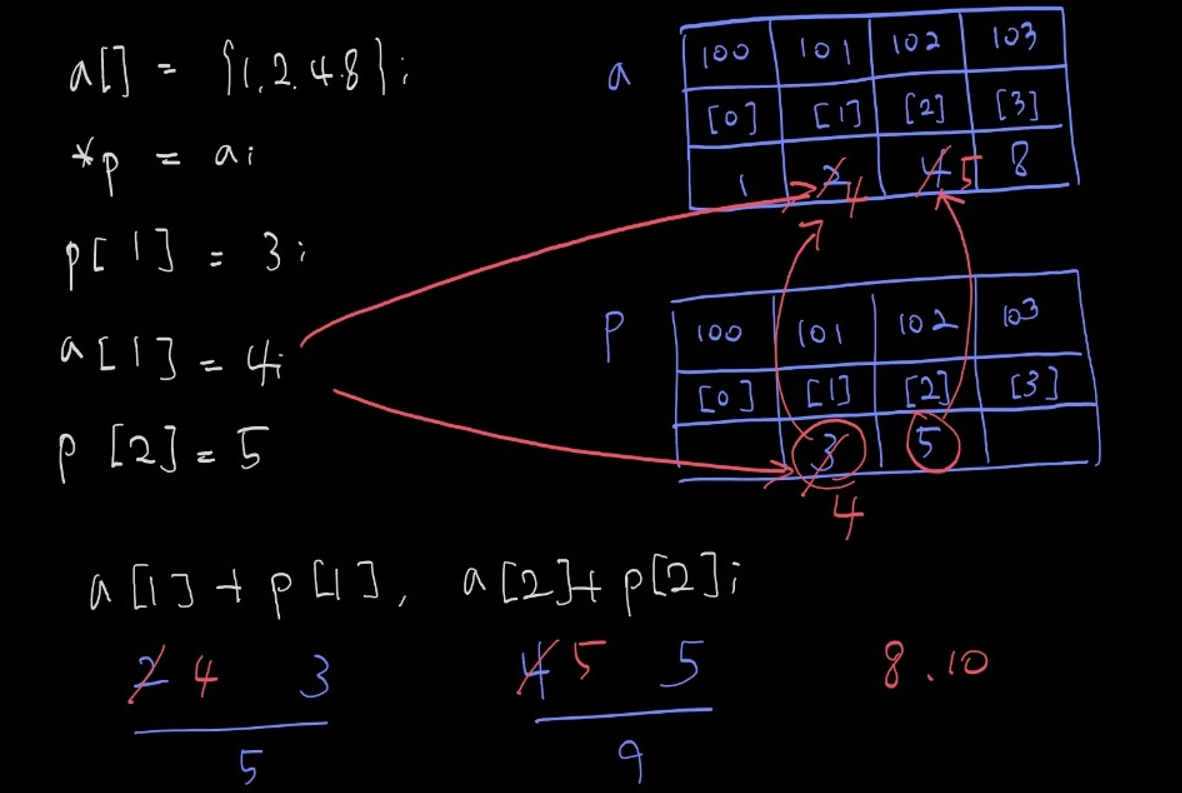 a[] = {1.2.4.8};
*p = a;
p[1] = 3;
a[1] = 4;
p[2] = 5
a
100 101 102 103
[0] [1] [2] [3]
1 2 4 4 5 8
p
100 101 102 103
[0] [1] [2] [3]
3 5
4
a[1] + p[1], a[2] + p[2];
2 4 3 4 5 5 8.10
5 9